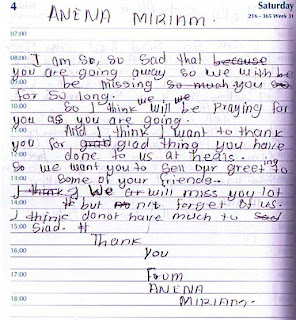 4
Saturday
216 - 365 Week 31
ANENA MIRIAM.
07:00
08:00 I am so, so sad that because
you are going away so we with be
09:00 be missing so much you so
for so long.
10:00 So I think we will we be praying for
you as you are going.
11:00 And I think I want to thank
you for glad thing you have
12:00 done to us at heals.
So we want you to sell our greeting
13:00 to some of your friends.
I think We ar will miss you lot
14:00 but no nit forget of us.
I think donot have much to sad
15:00 Siad.
Thank
16:00 You
17:00 From
ANENA
18:00 MIRIAM.